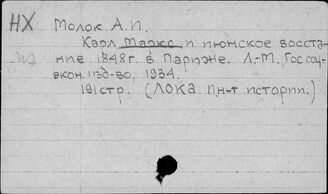 НХ
Молок А.И.
Карл Маркс и июнское восста-
ние 1848г. в Париже. Л.-М., Гос соц-
экон. изд-во, 1934.
191стр. (ЛОКА. Ин-т истории.)